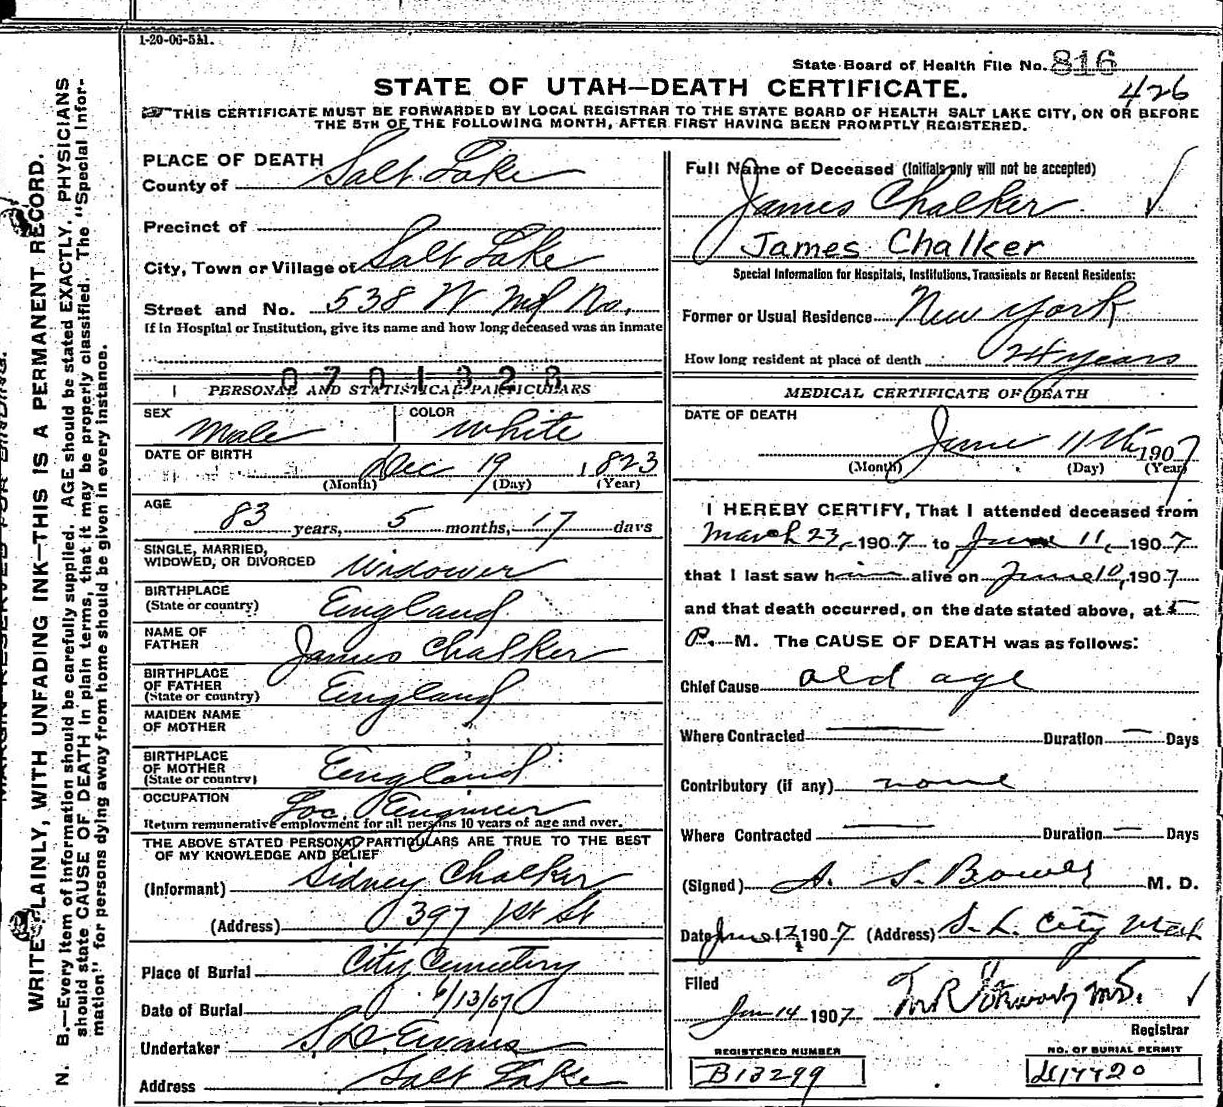 1-20-06-5M.
State Board of Health File No. 816
STATE OF UTAH—DEATH CERTIFICATE.
426
THIS CERTIFICATE MUST BE FORWARDED BY LOCAL REGISTRAR TO THE STATE BOARD OF HEALTH SALT LAKE CITY, ON OR BEFORE
THE 5TH OF THE FOLLOWING MONTH, AFTER FIRST HAVING BEEN PROMPTLY REGISTERED.
PLACE OF DEATH
County of Salt Lake
Precinct of
City, Town or Village of Salt Lake
Street and No. 538 W No.
If in Hospital or Institution, give its name and how long deceased was an inmate
0701323
PERSONAL AND STATISTICAL PARTICULARS
SEX Male COLOR White
DATE OF BIRTH Dec 19 1823
(Month) (Day) (Year)
AGE 83 years, 5 months, 17 days
SINGLE, MARRIED,
WIDOWED, OR DIVORCED Widower
BIRTHPLACE
(State or country) England
NAME OF
FATHER James Chalker
BIRTHPLACE
OF FATHER
(State or country) England
MAIDEN NAME
OF MOTHER
BIRTHPLACE
OF MOTHER
(State or country) England
OCCUPATION Loc. Engineer
Return remunerative employment for all persons 10 years of age and over.
THE ABOVE STATED PERSONAL PARTICULARS ARE TRUE TO THE BEST
OF MY KNOWLEDGE AND BELIEF
(Informant) Sidney Chalker
(Address) 397 1st St
Place of Burial City Cemetery
Date of Burial 6/13/07
Undertaker S.D. Evans
Address Salt Lake
Full Name of Deceased (Initials only will not be accepted)
James Chalker
James Chalker
Special Information for Hospitals, Institutions, Transients or Recent Residents:
Former or Usual Residence New York
How long resident at place of death 24 years
MEDICAL CERTIFICATE OF DEATH
DATE OF DEATH
June 11th 1907
(Month) (Day) (Year)
I HEREBY CERTIFY, That I attended deceased from
March 23, 1907 to June 11, 1907
that I last saw him alive on June 10, 1907
and that death occurred, on the date stated above, at 5
P. M. The CAUSE OF DEATH was as follows:
Chief Cause old age
Where Contracted — Duration — Days
Contributory (if any) none
Where Contracted — Duration — Days
(Signed) A. S. Bower M. D.
Date June 12, 1907 (Address) S. L. City Utah
Filed
Jun 14 1907
Registrar
REGISTERED NUMBER
B13299
NO. OF BURIAL PERMIT
WRITE PLAINLY, WITH UNFADING INK—THIS IS A PERMANENT RECORD.
N. B.—Every item of information should be carefully supplied. AGE should be stated EXACTLY. PHYSICIANS
should state CAUSE OF DEATH in plain terms, that it may be properly classified. The "Special Infor-
mation" for persons dying away from home should be given in every instance.